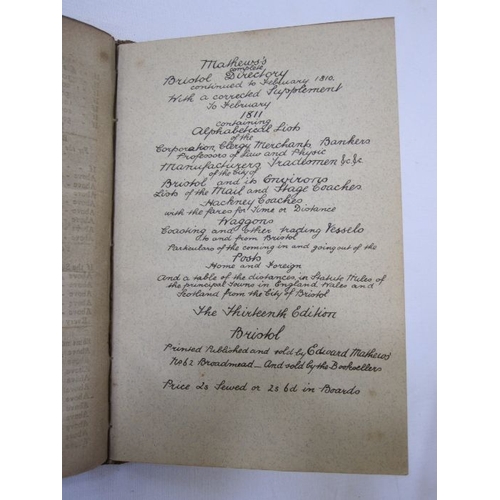 Mathews's
complete
Bristol Directory
continued to February 1810.
With a corrected Supplement
To February
1811
containing
Alphabetical Lists
of the
Corporation, Clergy Merchants, Bankers
Professors of Law and Physic
Manufacturers Tradesmen &c &c
of the City of
Bristol and its Environs
Lists of the Mail and Stage Coaches
Hackney Coaches
with the fares for Time or Distance
Waggons
Coasting and other trading Vessels
to and from Bristol
Particulars of the coming in and going out of the
Posts
Home and Foreign
And a table of the distances in Statute Miles of
the principal towns in England, Wales and
Scotland from the City of Bristol
The Thirteenth Edition
Bristol
Printed Published and sold by Edward Mathews
No 62 Broadmead - And sold by the Booksellers
Price 2s Sewed or 2s 6d in Boards